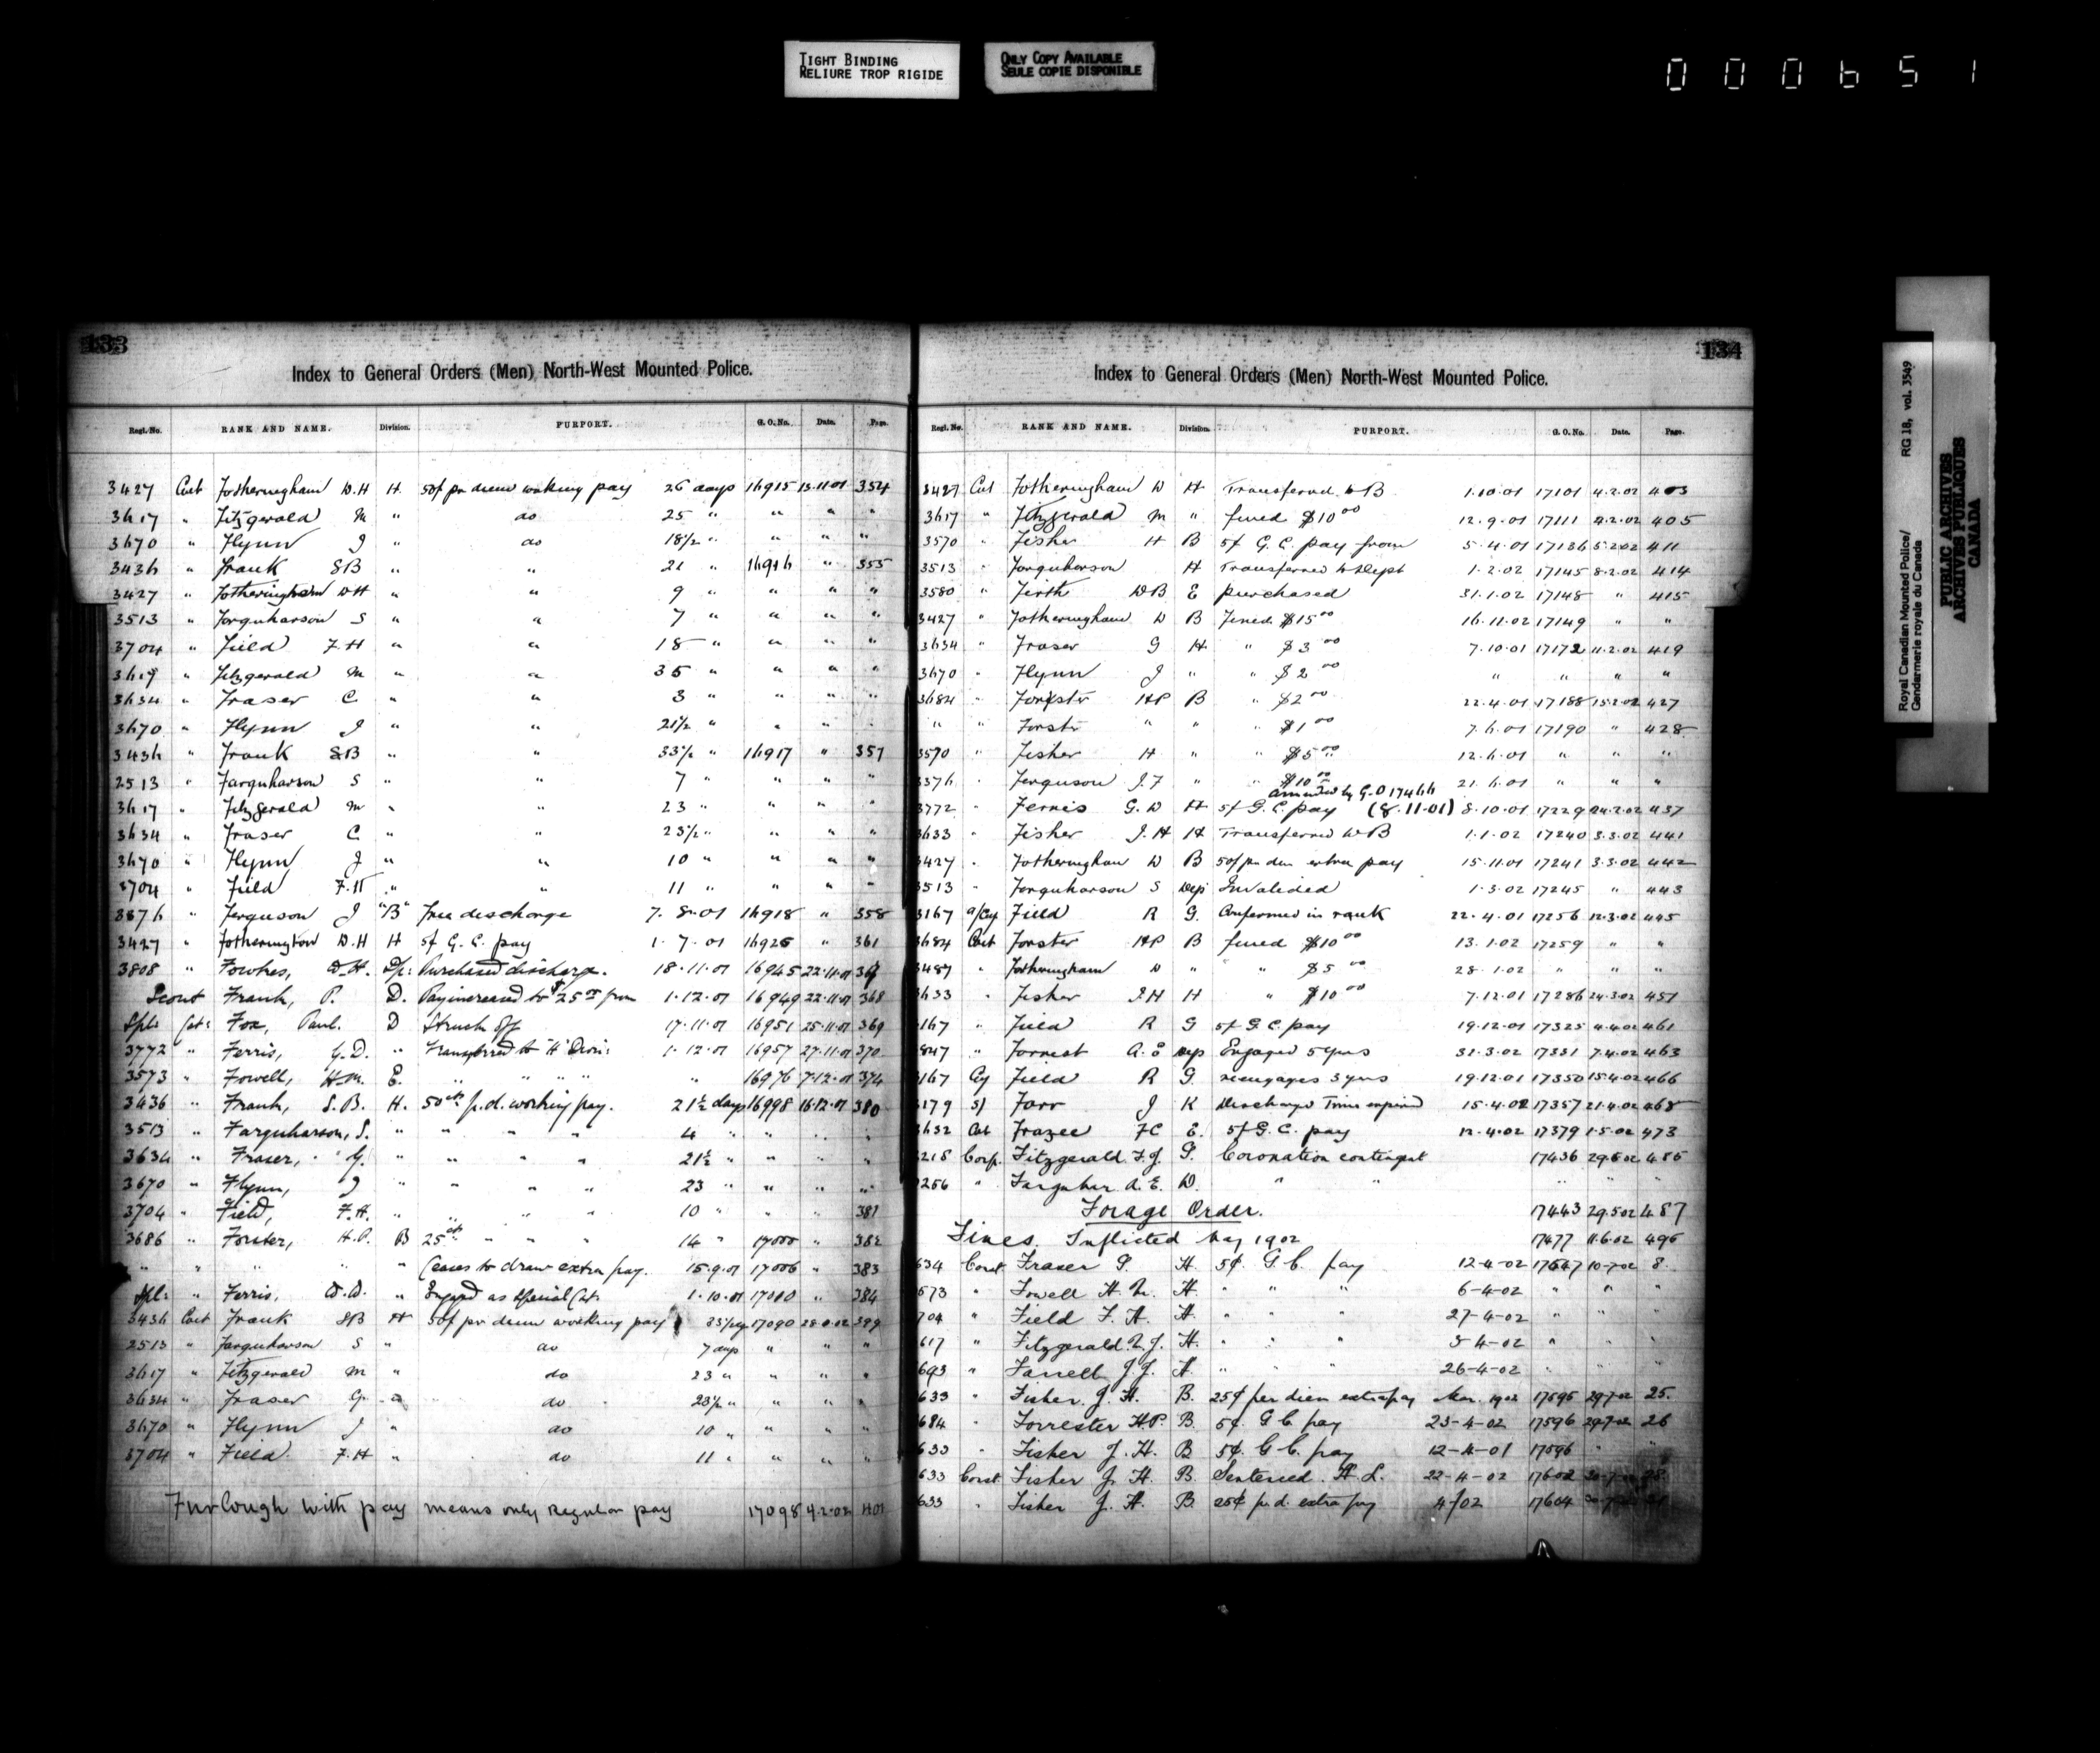 TIGHT BINDING
RELIURE TROP RIGIDE
ONLY COPY AVAILABLE
SEULE COPIE DISPONIBLE
000651
133
Index to General Orders (Men) North-West Mounted Police.
Regt. No. RANK AND NAME. Division. PURPORT. G. O. No. Date. Page.
3427 Cst Fotheringham W.H H 50¢ per diem working pay 26 days 16915 13.11.01 354
3617 " Fitzgerald M " do 25 " " " "
3670 " Flynn J " do 18½ " " " "
3436 " Frank SB " " 21 " 16916 " 355
3427 " Fotheringham WH " " 9 " " " "
3513 " Farquharson S " " 7 " " " "
3704 " Field F H " " 18 " " " "
3619 " Fitzgerald M " " 35 " " " "
3634 " Fraser C " " 3 " " " "
3670 " Flynn J " " 21½ " " " "
3436 " Frank SB " " 33½ " 16917 " 357
2513 " Farquharson S " " 7 " " " "
3617 " Fitzgerald M " " 23 " " " "
3634 " Fraser C " " 23½ " " " "
3670 " Flynn J " " 10 " " " "
3704 " Field F.H " " 11 " " " "
3376 " Ferguson J "B" Free discharge 7. 8.01 16918 " 358
3427 " Fotherington W.H H 5¢ G. C. pay 1. 7. 01 16926 " 361
3808 " Fowkes, W.H. Dp: Purchased discharge. 18.11.01 16945 22.11.01 367
Scout Frank, P. D. Pay increased to $25.00 from 1.12.01 16949 22.11.01 368
Spl: Cst: Fox, Paul. D Struck Off 17.11.01 16951 25.11.01 369
3772 " Ferris, G.D. " Transferred to "H" Divn: 1.12.01 16957 27.11.01 370
3573 " Fowell, H.M. E. " " " " " 16976 7.12.01 374
3436 " Frank, S.B. H. 50cts p.d. working pay. 21½ days 16998 16.12.01 380
3513 " Farquharson, S. " " " " 4 " " " "
3634 " Fraser, G. " " " " 21½ " " " "
3670 " Flynn, J " " " " 23 " " " "
3704 " Field, F.H. " " " " 10 " " " 381
3686 " Forster, H.P. B 25cts " " " 14 " 17000 " 382
" " " " " Ceases to draw extra pay. 15.9.01 17006 " 383
Spl: " Ferris, W.D. " Engaged as Special Cst. 1.10.01 17010 " 384
3436 Cst Frank SB H 50¢ per diem working pay 33½ 17090 399
2513 " Farquharson S " do 7 days " " "
3617 " Fitzgerald M " do 23 " " " "
3634 " Fraser G " do 23½ " " " "
3670 " Flynn J " do 10 " " " "
3704 " Field F.H " do 11 " " " "
Furlough with pay means only regular pay 17098 4.2.02 401
134
Index to General Orders (Men) North-West Mounted Police.
Regt. No. RANK AND NAME. Division. PURPORT. G. O. No. Date. Page.
3427 Cst Fotheringham W H Transferred to B 1.10.01 17101 4.2.02 403
3617 " Fitzgerald M " fined $10 00 12.9.01 17111 4.2.02 405
3570 " Fisher H B 5¢ G. C. pay from 5.4.01 17136 5.2.02 411
3513 " Farquharson H Transferred to Dept 1.2.02 17145 8.2.02 414
3580 " Firth WB E purchased 31.1.02 17148 " 415
3427 " Fotheringham W B Fined $15 00 16.11.02 17149 " "
3634 " Fraser G H " $3 00 7.10.01 17172 11.2.02 419
3670 " Flynn J " " $2 00 " " " "
3684 " Forester HP B " $2 00 22.4.01 17188 15.2.02 427
" " Forster " " " $1 00 7.6.01 17190 " 428
3570 " Fisher H " " $5 00 12.6.01 " " "
3376 " Ferguson J.F " " $10 00 21.6.01 " " "
amended by G.O 17466
3772 " Ferris G.D H 5¢ G.C. pay (8.11.01) 8.10.01 17229 24.2.02 437
3633 " Fisher J.H H Transferred to B 1.1.02 17240 3.3.02 441
3427 " Fotheringham W B 50¢ per diem extra pay 15.11.01 17241 3.3.02 442
3513 " Farquharson S Dep Invalided 1.3.02 17245 " 443
3167 a/Cy Field R G. Confirmed in rank 22.4.01 17256 12.3.02 445
3684 Cst Forster HP B fined $10 00 13.1.02 17259 " "
3487 " Fotheringham W " " $5 00 28.1.02 " " "
3633 " Fisher J H H " $10 00 7.12.01 17286 24.3.02 451
3167 " Field R G 5¢ G.C. pay 19.12.01 17325 4.4.02 461
847 " Forrest A. E Dep Engaged 5 years 31.3.02 17331 7.4.02 463
3167 Cy Field R G. reengages 3 years 19.12.01 17350 15.4.02 466
3179 Sj Farr J K Discharged Time expired 15.4.02 17357 21.4.02 468
3632 Cst Frazee FC E. 5¢ G.C. pay 12.4.02 17379 1.5.02 473
3218 Corp. Fitzgerald. F.J. G. Coronation contingent 17436 29.5.02 485
3256 " Farquhar A. E. D. " " " " "
Forage Order. 17443 29.5.02 487
Fines. Inflicted May 1902 17477 11.6.02 495
634 Const Fraser G. H. 5¢. G C. pay 12-4-02 17547 10-7-02 8.
573 " Fowell H. M. H. " " " 6-4-02 " " "
704 " Field F. H. H. " " " 27-4-02 " " "
617 " Fitzgerald M.J. H. " " " 5-4-02 " " "
693 " Farrell J.J. H. " " " 26-4-02 " " "
633 " Fisher. J. H. B. 25¢ per diem extra pay Mar. 1902 17595 29-7-02 25.
684 " Forrester H.P. B. 5¢. G C pay 23-4-02 17596 29-7-02 26
633 " Fisher J. H. B 5¢. G C. pay 12-4-01 17596 " "
633 Const Fisher J. H. B. Sentenced. H. L. 22-4-02 17602 28.
633 " Fisher J. H. B. 25¢ p.d. extra pay 4/02 17604
Royal Canadian Mounted Police/ RG 18, vol. 3549
Gendarmerie royale du Canada
PUBLIC ARCHIVES
ARCHIVES PUBLIQUES
CANADA